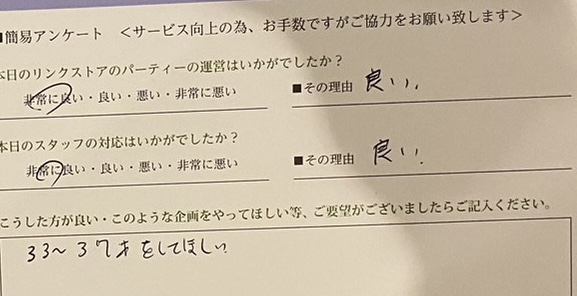 ■簡易アンケート ＜サービス向上の為、お手数ですがご協力をお願い致します＞
本日のリンクストアのパーティーの運営はいかがでしたか？
非常に良い・良い・悪い・非常に悪い ■その理由 良い、
本日のスタッフの対応はいかがでしたか？
非常に良い・良い・悪い・非常に悪い ■その理由 良い、
こうした方が良い・このような企画をやってほしい等、ご要望がございましたらご記入ください。
33〜37才をしてほしい